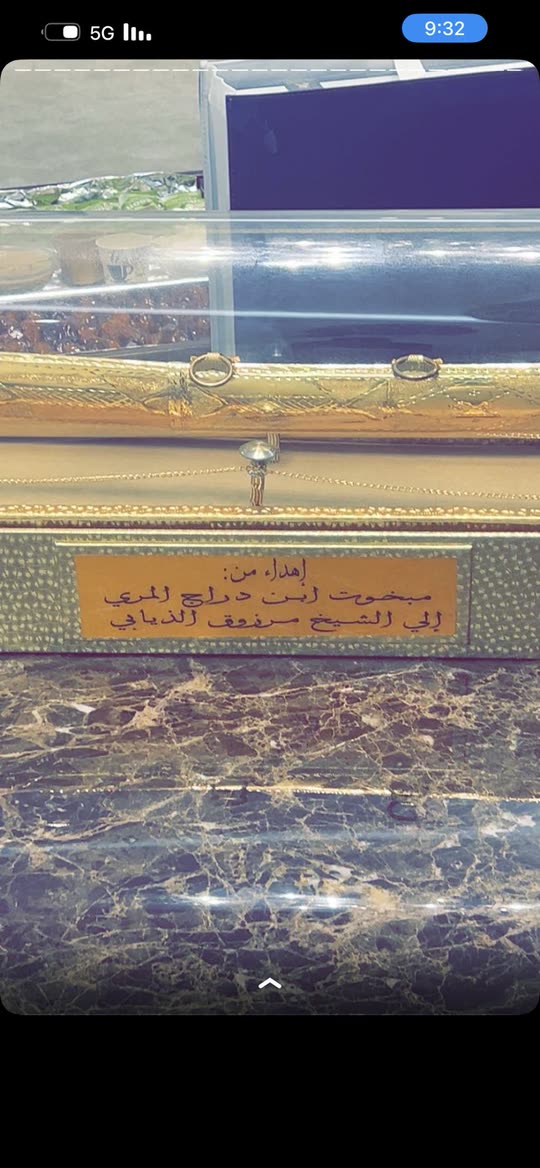 5G
9:32
إهداء من:
مبخوت ابن دراج المري
إلي الشيخ مرزوق الذيابي